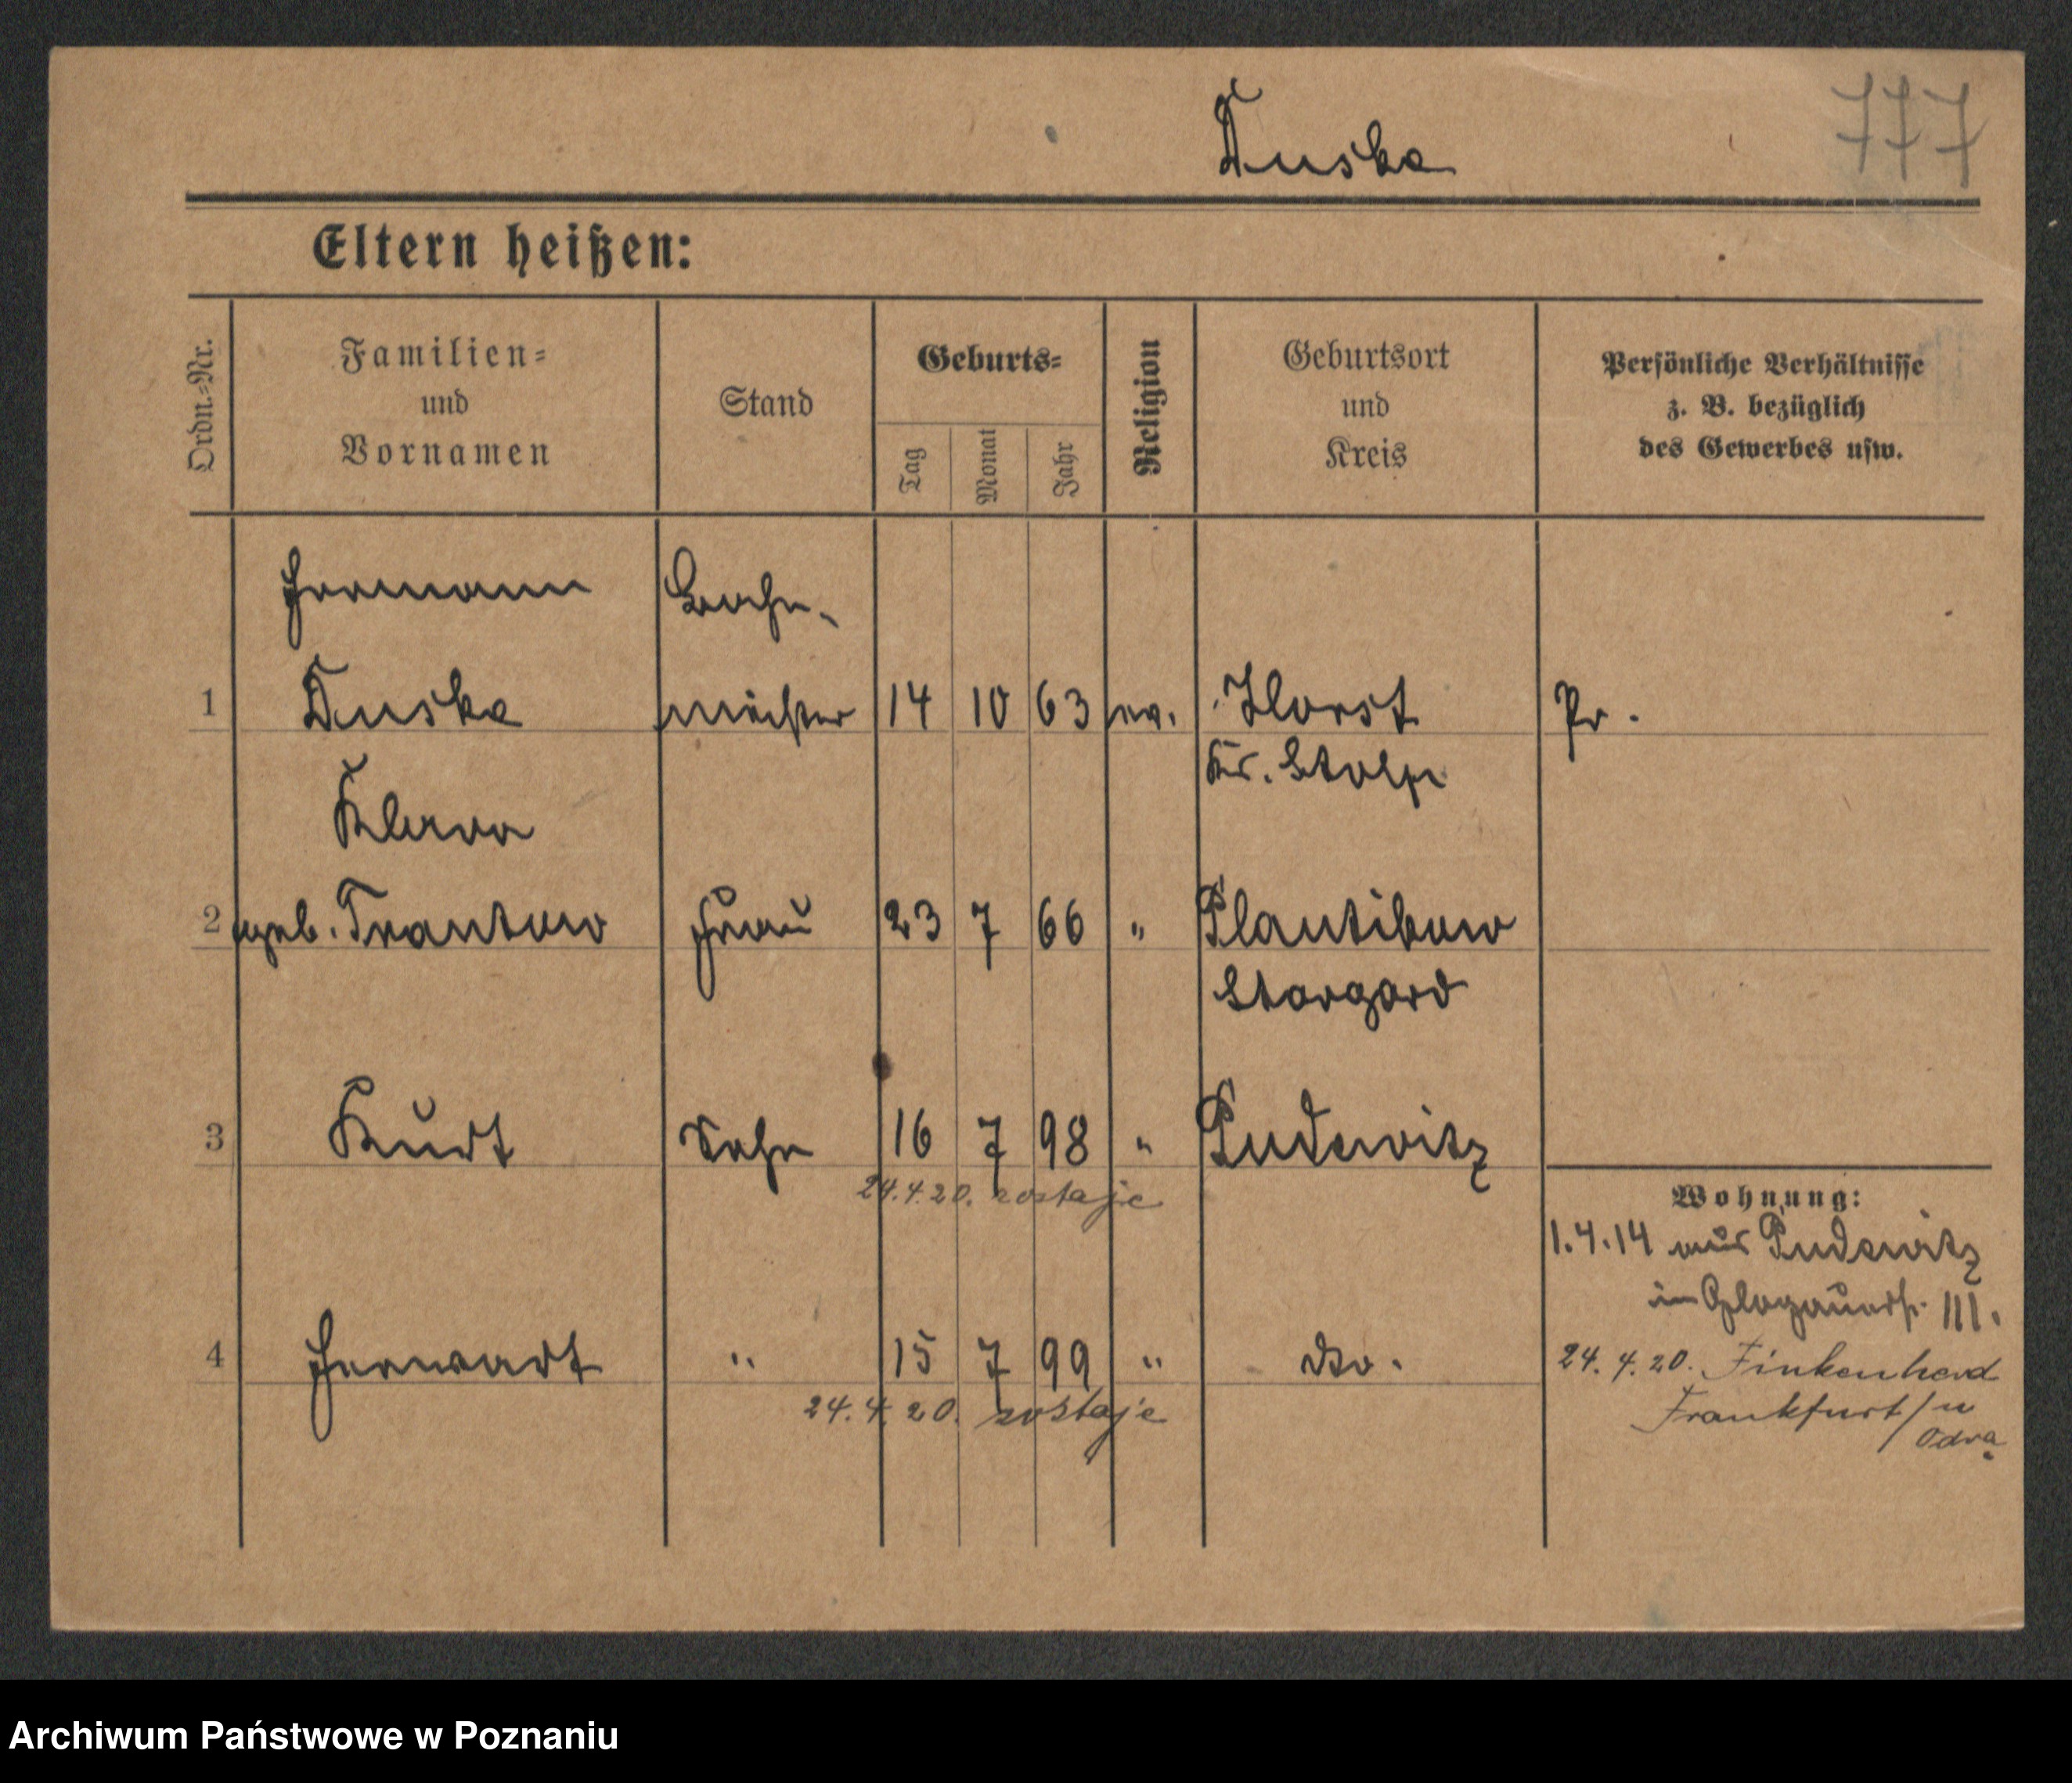 Duske
777
Eltern heißen:
Ordn.-Nr.
Familien-
und
Vornamen
Stand
Geburts-
Tag
Monat
Jahr
Religion
Geburtsort
und
Kreis
Persönliche Verhältnisse
z. B. bezüglich
des Gewerbes usw.
Hermann Bahn-
1 Duske meister 14 10 63 ev. Horst Pr.
Kr. Stolp
Klara
2 geb. Trantow Frau 23 7 66 " Plantikow
Stargard
3 Kurt Sohn 16 7 98 " Pudewitz
24.4.20. zostaje
Wohnung:
1.4.14 aus Pudewitz
in Glogauerstr. 111.
4 Herwart " 15 7 99 " do.
24.4.20. zostaje
24.4.20. Finkenherd
Frankfurt/n
Odrą
Archiwum Państwowe w Poznaniu